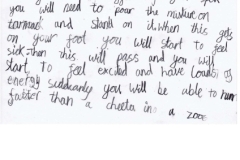 you will need to pour the mixture on
tarmac and stand on it. When this gets
on your foot you will start to feel
sick then this will pass and you will
start to feel excited and have loads of
energy suddenly you will be able to run
faster than a cheeta in a zooe